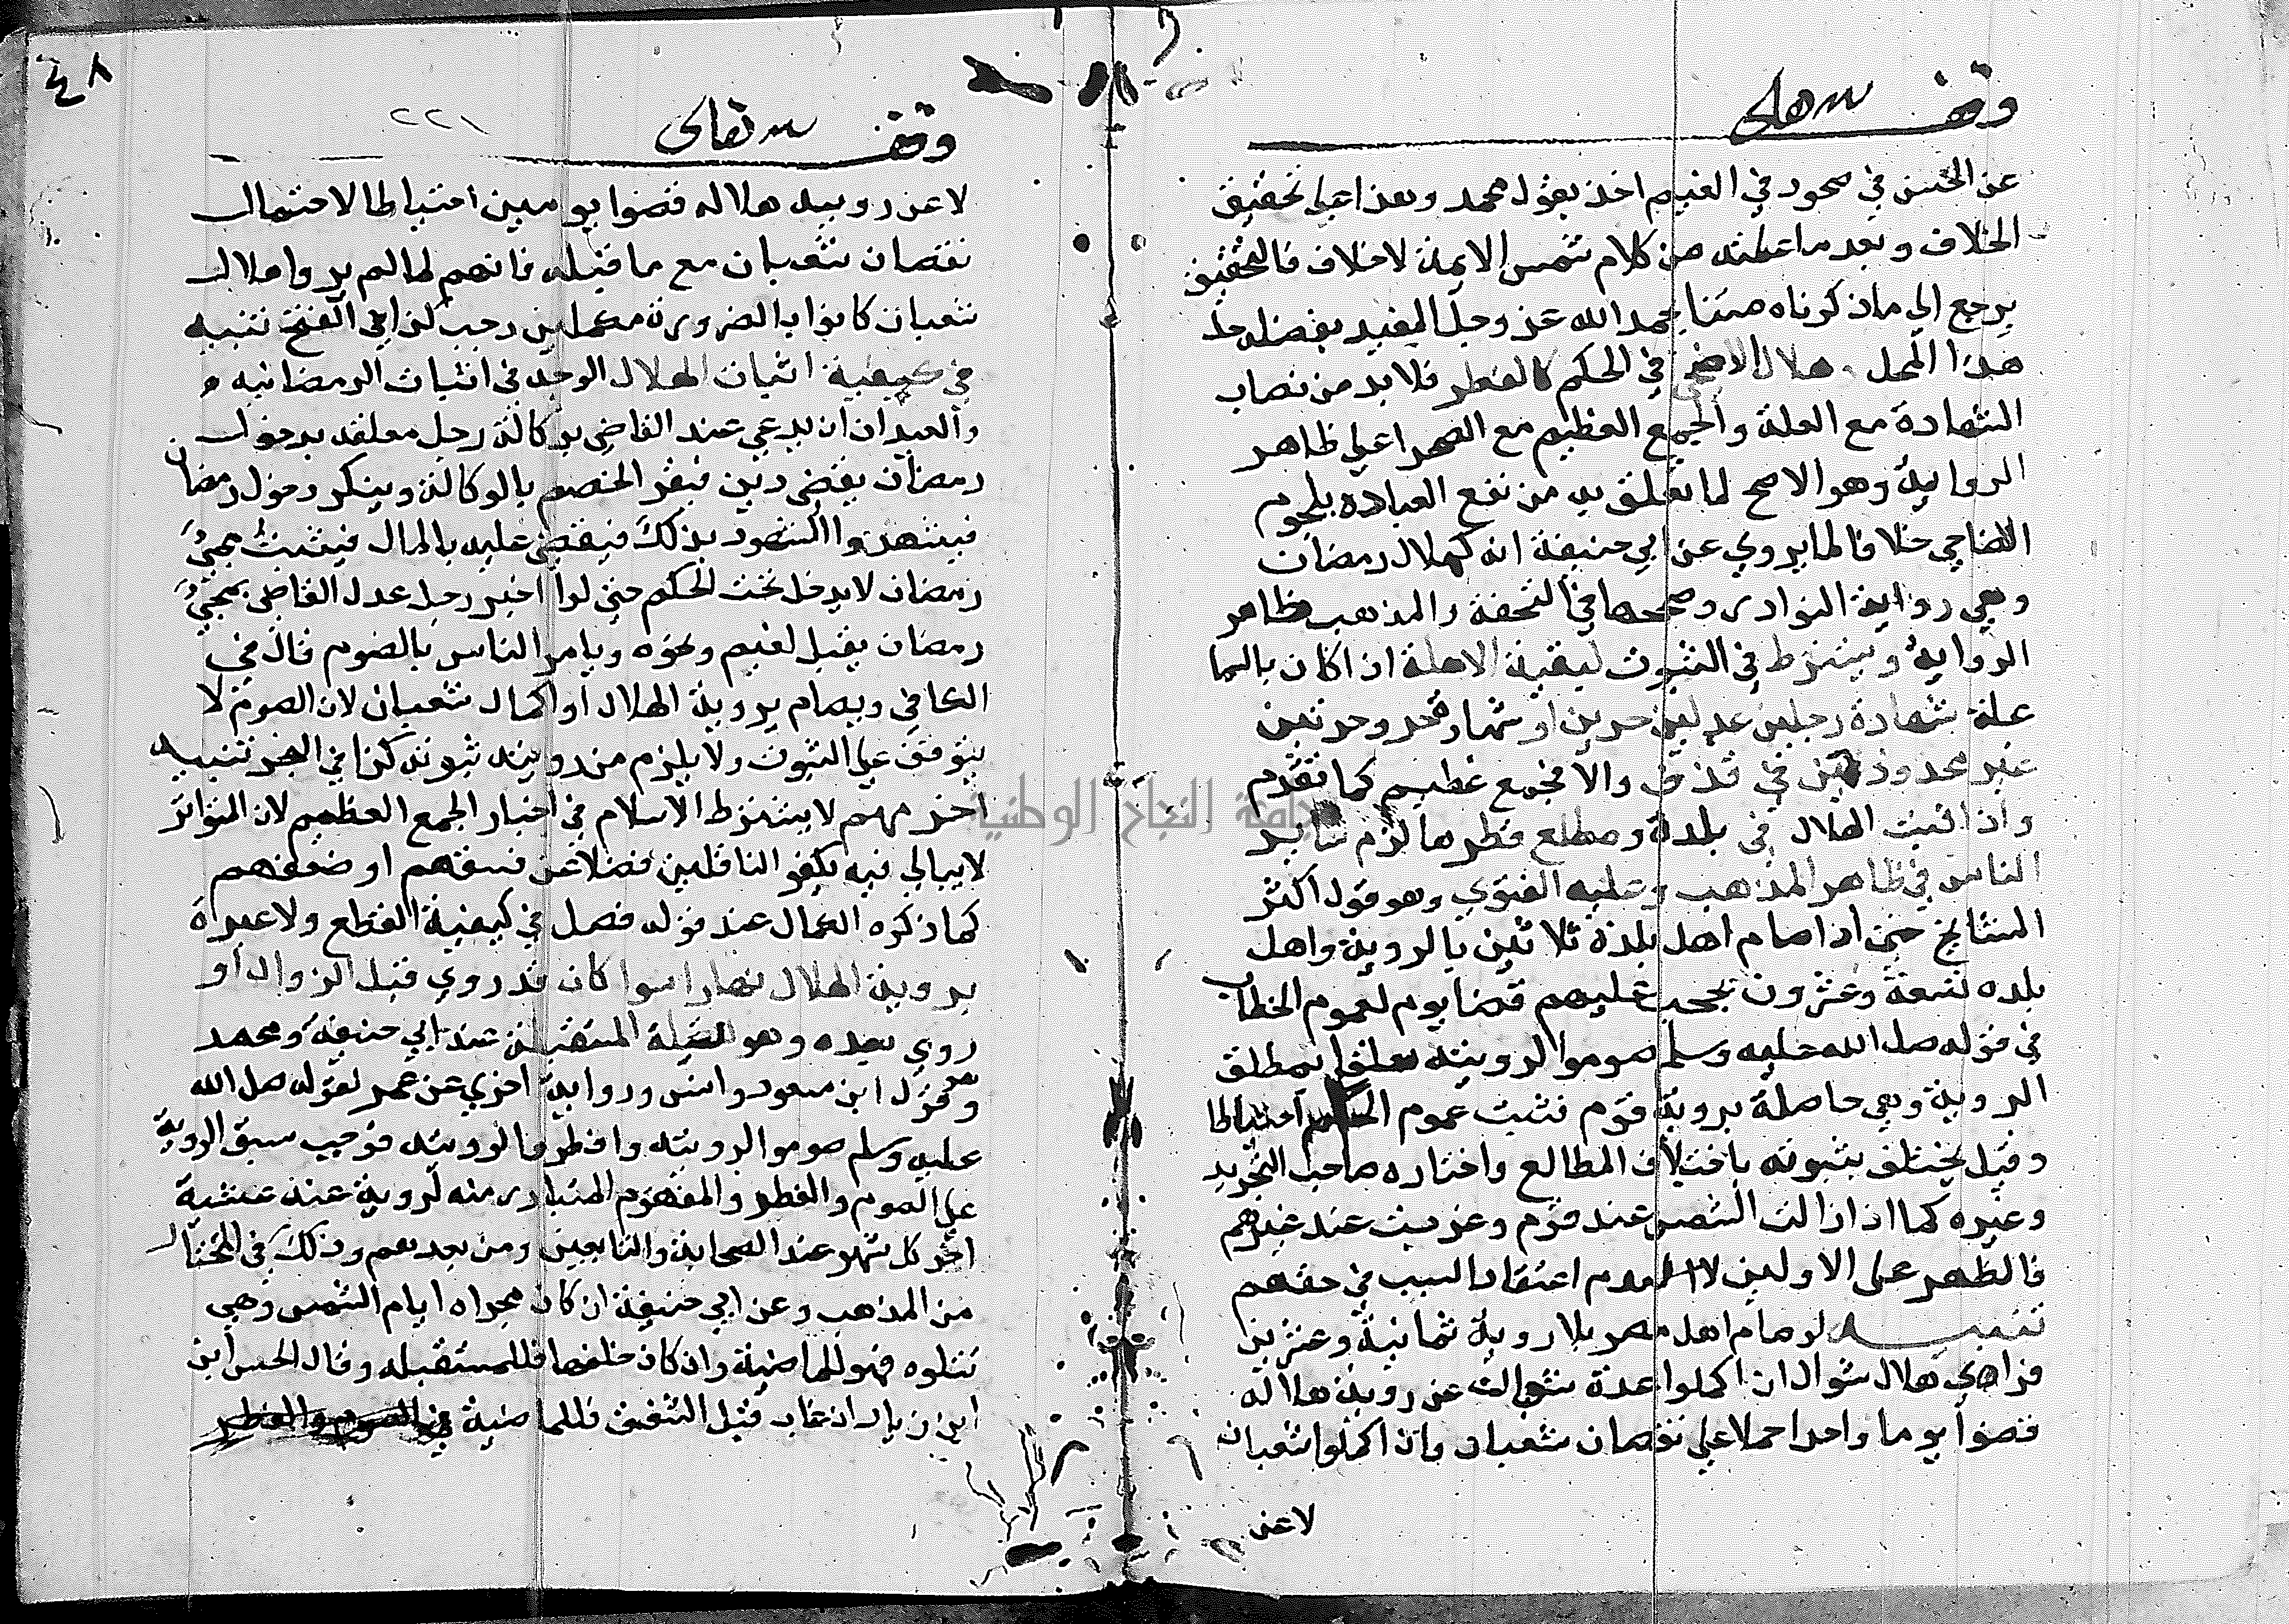 وقف لله تعالى
عن الحسن في صحود في الغيم اخذ بقول محمد وهذا على تحقيق
الخلاف وبعد ما علمته من كلام شمس الايمة لا خلاف فالتحقيق
يرجع الى ما ذكرناه متنا بحمد الله عز وجل المفيد بفضله حل
هذا المحل وهلال الاضحى في الحكم كالفطر فلا بد من نصاب
الشهادة مع العلة والجمع العظيم مع الصحو على ظاهر
الرواية وهو الاصح لما تعلق به من نفع العباد بلحوم
الاضاحي خلافا لما يروي عن ابي حنيفة انه كهلال رمضان
وهي رواية النوادر وصححها في التحفة والمذهب ظاهر
الرواية ويشترط في الثبوت لبقية الاهلة اذا كان بالسما
علة شهادة رجلين عدلين حرين او شهادة حر وحرتين
غير محدودين في قذف والا فجمع عظيم كما تقدم
واذا ثبت الهلال في بلدة ومطلع قطرها لزم ساير
الناس في ظاهر المذهب وعليه الفتوي وهو قول اكثر
المشايخ حتى اذا صام اهل بلدة ثلاثين بالروية واهل
بلده تسعة وعشرون يجب عليهم قضا يوم لعموم الخطاب
في قوله صل الله عليه وسلم صوموا لرويته معلقا بمطلق
الروية وهي حاصلة بروية قوم فثبت عموم الحكم احتياطا
وقيل يختلف بثبوته باختلاف المطالع واختاره صاحب التجريد
وغيره كما اذا زالت الشمس عند قوم وغربت عند غيرهم
فالظهر على الاولين لا لعدم اعتقاد السبب في حقهم
تنبيه لو صام اهل مصر بلا روية ثمانية وعشرين
فراهى هلال شوال ان اكملوا عدة شعبان عن روية هلاله
قضوا يوما واحدا حملا على نقصان شعبان وان اكملوا شعبان
لا عن
٤٨
٢٢١
وقف لله تعالى
لا عن رويه هلاله قضوا يومين احتياطا لاحتمال
نقصان شعبان مع ما قبله فانهم لما لم يروا هلال
شعبان كانوا بالضرورة مكملين رجب كذا في الفتح تنبيه
في كيفية اثبات الهلال الوجه في اثبات الرمضانيه
والعيد ان ان يدعي عند القاضي بوكالة رجل معلقه بدخول
رمضان بقبض دين فيقر الخصم بالوكالة وينكر دخول رمضان
فيشهدوا الشهود بذلك فيقضى عليه بالمال فيثبت مجيء
رمضان لا يدخل تحت الحكم حتى لو اخبر رجل عدل القاضي بمجيء
رمضان يقبل لغيم ونحوه ويامر الناس بالصوم قال في
الكافي ويصام بروية الهلال او اكمال شعبان لان الصوم لا
يتوقف على الثبوت ولا يلزم من رويته ثبوته كذا في البحر تنبيه
اخر مهم لا يشترط الاسلام في اخبار الجمع العظيم لان المتواتر
لا يبالي فيه بكفر الناقلين فضلا عن فسقهم او ضعفهم
كما ذكره الكمال عند قوله فصل في كيفية القطع ولا عبرة
بروية الهلال نهارا سوا كان قد روي قبل الزوال او
روي بعده وهو لليلة المستقبلة عند ابي حنيفة ومحمد
وهو قول ابن مسعود وانس ورواية اخري عن عمر لقوله صل الله
عليه وسلم صوموا لرويته وافطروا لرويته فوجب سبق الروية
على الصوم والفطر والمفهوم المتبادر منه لروية عند عشية
اخر كل شهر عند الصحابة والتابعين ومن بعدهم وذلك في المختار
من المذهب وعن ابي حنيفة ان كان مجراه ايام الشمس وهي
تتلوه فهو للماضية وان كان خلفها فللمستقبله وقال الحسن ابن
ابن زياد ان غاب قبل الشفق فللماضية في الصوم والفطر
جامعة النجاح الوطنية